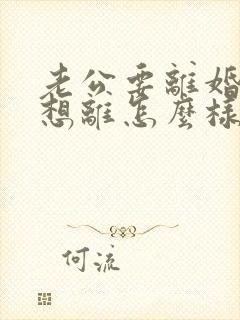 老公要離婚
想離怎麼樣
何流